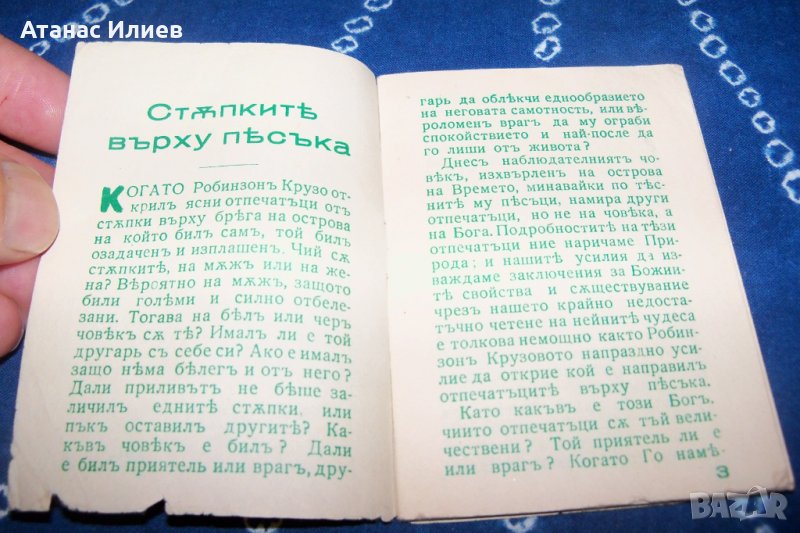 Атанас Илиев
Стѫпкитѣ
върху пѣсъка
КОГАТО Робинзонъ Крузо от-
крилъ ясни отпечатъци отъ
стѫпки върху брѣга на острова
на който билъ самъ, той билъ
озадаченъ и изплашенъ. Чий сѫ
стѫпкитѣ, на мѫжъ или на же-
на? Вѣроятно на мѫжъ, защото
били голѣми и силно отбеле-
зани. Тогава на бѣлъ или черъ
човѣкъ сѫ тѣ? Ималъ ли е той
другарь съ себе си? Ако е ималъ
защо нѣма бѣлегъ и отъ него?
Дали приливътъ не бѣше за-
личилъ еднитѣ стѫпки, или
пъкъ оставилъ другитѣ? Ка-
къвъ човѣкъ е билъ? Дали
е билъ приятель или врагъ, дру-
гарь да облѣкчи еднообразието
на неговата самотность, или вѣ-
роломенъ врагъ да му ограби
спокойствието и най-после да
го лиши отъ живота?
Днесъ наблюдателниятъ чо-
вѣкъ, изхвърленъ на острова
на Времето, минавайки по тѣс-
ните му пѣсъци, намира други
отпечатъци, но не на човѣка, а
на Бога. Подробноститѣ на тѣзи
отпечатъци ние наричаме При-
рода; и нашитѣ усилия да из-
важдаме заключения за Божии-
тѣ свойства и сѫществувание
чрезъ нашето крайно недоста-
тъчно четене на нейнитѣ чудеса
е толкова немощно както Робин-
зонъ Крузовото напраздно уси-
лие да открие кой е направилъ
отпечатъцитѣ върху пѣсъка.
Като какъвъ е този Богъ,
чиито отпечатъци сѫ тъй вели-
чествени? Той приятель ли е
или врагъ? Когато Го намѣ-
3
BAZAR